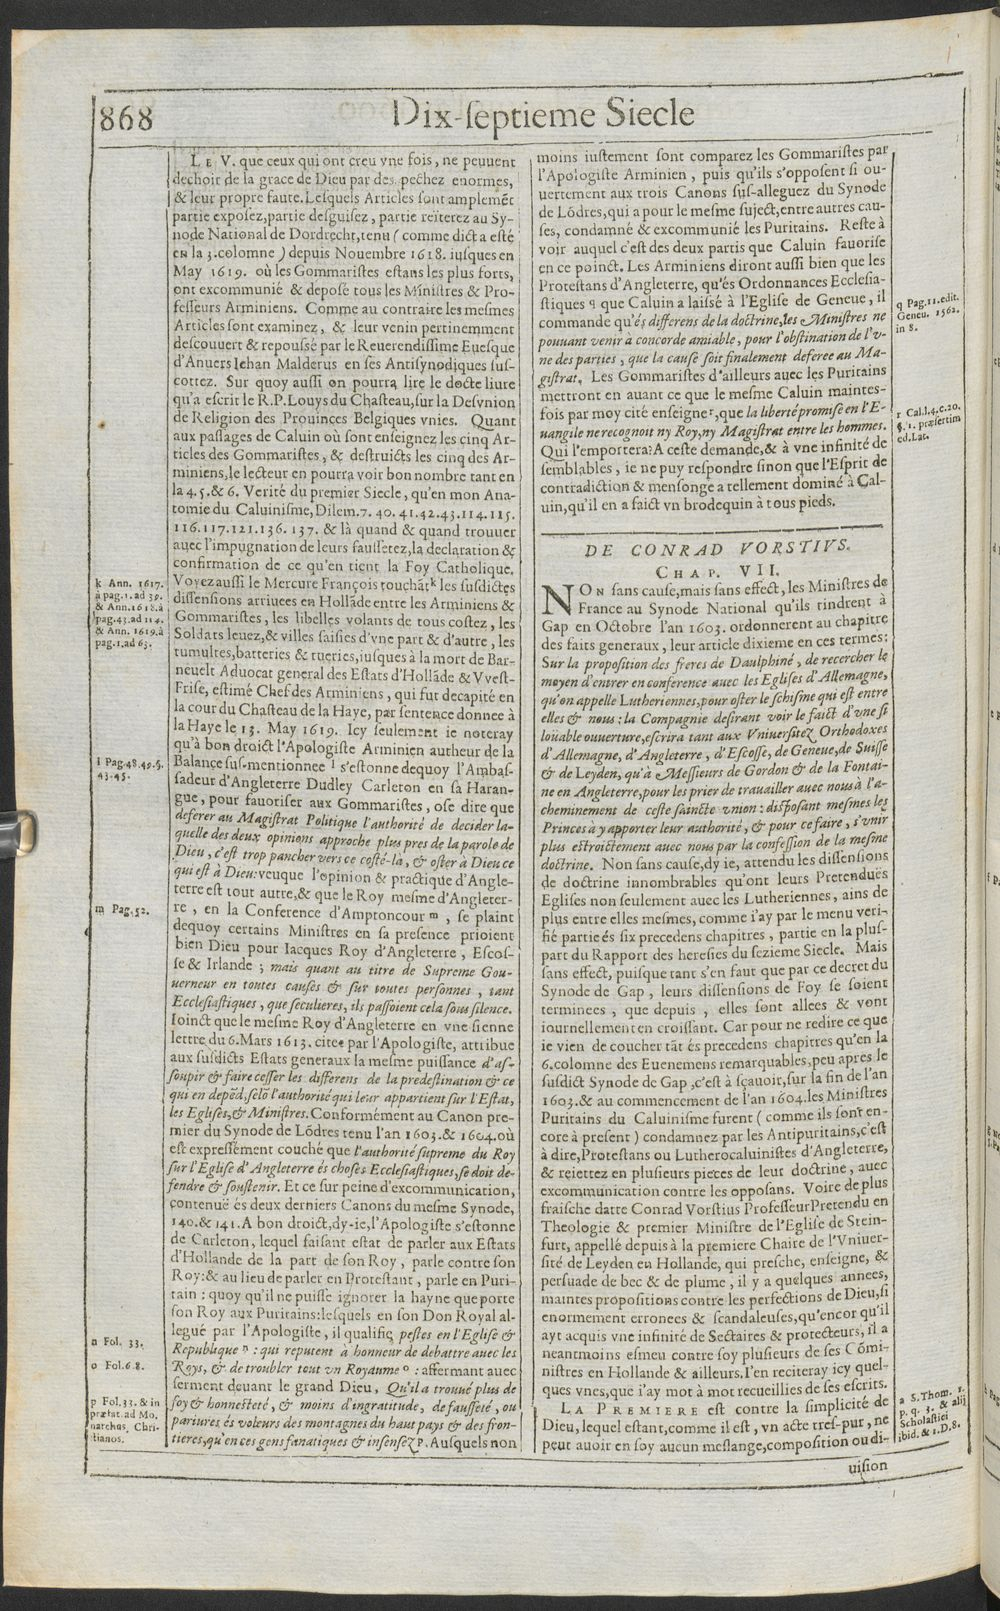 868
Dix-ſeptieme Siecle
LE V. que ceux qui ont creu vne fois, ne peuuent
dechoir de la grace de Dieu par des pechez enormes,
& leur propre faute. Leſquels Articles ſont amplemēt
partie expoſez, partie deſguiſez, partie reiterez au Sy-
node National de Dordrecht, tenu ( comme dict a eſté
en la 3. colomne ) depuis Nouembre 1618. iuſques en
May 1619. où les Gommariſtes eſtans les plus forts,
ont excommunié & depoſé tous les Miniſtres & Pro-
feſſeurs Arminiens. Comme au contraire les meſmes
Articles ſont examinez, & leur venin pertinemment
deſcouuert & repouſſé par le Reuerendiſſime Eueſque
d'Anuers Iehan Malderus en ſes Antiſynodiques ſuſ-
cottez. Sur quoy auſſi on pourra lire le docte liure
qu'a eſcrit le R.P. Louys du Chaſteau, ſur la Deſvnion
de Religion des Prouinces Belgiques vnies. Quant
aux paſſages de Caluin où ſont enſeignez les cinq Ar-
ticles des Gommariſtes, & deſtruicts les cinq des Ar-
miniens, le lecteur en pourra voir bon nombre tant en
la 4. 5. & 6. Verité du premier Siecle, qu'en mon Ana-
tomie du Caluiniſme, Dilem. 7. 40. 41. 42. 43. 114. 115.
116. 117. 121. 136. 137. & là quand & quand trouuer
auec l'impugnation de leurs fauſſetez, la declaration &
confirmation de ce qu'en tient la Foy Catholique.
Voyez auſſi le Mercure François touchāt k les ſuſdictes
diſſenſions arriuees en Hollāde entre les Arminiens &
Gommariſtes, les libelles volants de tous coſtez, les
Soldats leuez, & villes ſaiſies d'vne part & d'autre, les
tumultes, batteries & tueries, iuſques à la mort de Bar-
neuelt Aduocat general des Eſtats d'Hollāde & Vveſt-
Friſe, eſtimé Chef des Arminiens, qui fut decapité en
la cour du Chaſteau de la Haye, par ſentence donnee à
la Haye le 13. May 1619. Icy ſeulement ie noteray
qu'à bon droict l'Apologiſte Arminien autheur de la
Balance ſuſ-mentionnee l s'eſtonne dequoy l'Ambaſ-
ſadeur d'Angleterre Dudley Carleton en ſa Haran-
gue, pour fauoriſer aux Gommariſtes, oſe dire que
deferer au Magiſtrat Politique l'authorité de decider la-
quelle des deux opinions approche plus pres de la parole de
Dieu, c'eſt trop pancher vers ce coſté-là, & oſter à Dieu ce
qui eſt à Dieu: veuque l'opinion & practique d'Angle-
terre eſt tout autre, & que le Roy meſme d'Angleter-
re, en la Conference d'Amptoncour m, ſe plaint
dequoy certains Miniſtres en ſa preſence prioient
bien Dieu pour Iacques Roy d'Angleterre, Eſcoſ-
ſe & Irlande ; mais quant au titre de Supreme Gou-
uerneur en toutes cauſes & ſur toutes perſonnes, tant
Eccleſiaſtiques, que ſeculieres, ils paſſoient cela ſous ſilence.
Ioinct que le meſme Roy d'Angleterre en vne ſienne
lettre du 6. Mars 1613. citee par l'Apologiſte, attribue
aux ſuſdicts Eſtats generaux la meſme puiſſance d'aſ-
ſoupir & faire ceſſer les differens de la predeſtination & ce
qui en depēd, ſelō l'authorité qui leur appartient ſur l'Eſtat,
les Egliſes, & Miniſtres. Conformément au Canon pre-
mier du Synode de Lōdres tenu l'an 1603. & 1604. où
eſt expreſſément couché que l'authorité ſupreme du Roy
ſur l'Egliſe d'Angleterre és choſes Eccleſiaſtiques, ſe doit de-
fendre & ſouſtenir. Et ce ſur peine d'excommunication,
contenuë és deux derniers Canons du meſme Synode,
140. & 141. A bon droict, dy-ie, l'Apologiſte s'eſtonne
de Carleton, lequel faiſant eſtat de parler aux Eſtats
d'Hollande de la part de ſon Roy, parle contre ſon
Roy: & au lieu de parler en Proteſtant, parle en Puri-
tain : quoy qu'il ne puiſſe ignorer la hayne que porte
ſon Roy aux Puritains: leſquels en ſon Don Royal al-
legué par l'Apologiſte, il qualifie peſtes en l'Egliſe &
Republique n : qui reputent à honneur de debattre auec les
Roys, & de troubler tout vn Royaume o : affermant auec
ſerment deuant le grand Dieu, Qu'il a trouué plus de
foy & honneſteté, & moins d'ingratitude, de fauſſeté, ou
pariures és voleurs des montagnes du haut pays & des fron-
tieres, qu'en ces gens fanatiques & inſenſez p. Auſquels non
k Ann. 1617.
à pag. 1. ad 39.
& Ann. 1618. à
pag. 43. ad 114.
& Ann. 1619. à
pag. 1. ad 63.
l Pag. 48. 49. §.
43. 45.
m Pag. 52.
n Fol. 33.
o Fol. 6. 8.
p Fol. 33. & in
præfat. ad Mo.
narchus, Chri-
stianos.
moins iuſtement ſont comparez les Gommariſtes par
l'Apologiſte Arminien, puis qu'ils s'oppoſent ſi ou-
uertement aux trois Canons ſuſ-alleguez du Synode
de Lōdres, qui a pour le meſme ſuject, entre autres cau-
ſes, condamné & excommunié les Puritains. Reſte à
voir auquel c'eſt des deux partis que Caluin fauoriſe
en ce poinct. Les Arminiens diront auſſi bien que les
Proteſtans d'Angleterre, qu'és Ordonnances Eccleſia-
ſtiques q que Caluin a laiſſé à l'Egliſe de Geneue, il
commande qu'és differens de la doctrine, les Miniſtres ne
pouuant venir à concorde amiable, pour l'obſtination de l'v-
ne des parties, que la cauſe ſoit finalement deferee au Ma-
giſtrat. Les Gommariſtes d'ailleurs auec les Puritains
mettront en auant ce que le meſme Caluin maintes-
fois par moy cité enſeigne r, que la liberté promiſe en l'E-
uangile ne recognoit ny Roy, ny Magiſtrat entre les hommes.
Qui l'emportera: A ceſte demande, & à vne infinité de
ſemblables, ie ne puy reſpondre ſinon que l'Eſprit de
contradiction & menſonge a tellement dominé à Cal-
uin, qu'il en a faict vn brodequin à tous pieds.
q Pag. 11. edit.
Geneu. 1562.
in 8.
r Cal. l. 4. c. 20.
§. 1. præſertim
ed. Lat.
DE CONRAD VORSTIVS.
CHAP. VII.
NON ſans cauſe, mais ſans effect, les Miniſtres de
France au Synode National qu'ils tindrent à
Gap en Octobre l'an 1603. ordonnerent au chapitre
des faits generaux, leur article dixieme en ces termes:
Sur la propoſition des freres de Daulphiné, de recercher le
moyen d'entrer en conference auec les Egliſes d'Allemagne,
qu'on appelle Lutheriennes, pour oſter le ſchiſme qui eſt entre
elles & nous : la Compagnie deſirant voir le faict d'vne ſi
loüable ouuerture, eſcrira tant aux Vniuerſitez Orthodoxes
d'Allemagne, d'Angleterre, d'Eſcoſſe, de Geneue, de Suiſſe
& de Leyden, qu'à Meſſieurs de Gordon & de la Fontai-
ne en Angleterre, pour les prier de trauailler auec nous à l'a-
cheminement de ceſte ſaincte vnion : diſpoſant meſmes les
Princes à y apporter leur authorité, & pour ce faire, s'vnir
plus eſtroictement auec nous par la confeſſion de la meſme
doctrine. Non ſans cauſe, dy ie, attendu les diſſenſions
de doctrine innombrables qu'ont leurs Pretenduës
Egliſes non ſeulement auec les Lutheriennes, ains de
plus entre elles meſmes, comme i'ay par le menu veri-
fié partie és ſix precedens chapitres, partie en la pluſ-
part du Rapport des hereſies du ſezieme Siecle. Mais
ſans effect, puiſque tant s'en faut que par ce decret du
Synode de Gap, leurs diſſenſions de Foy ſe ſoient
terminees, que depuis, elles ſont allees & vont
iournellement en croiſſant. Car pour ne redire ce que
ie vien de coucher tāt és precedens chapitres qu'en la
6. colomne des Euenemens remarquables, peu apres le
ſuſdict Synode de Gap, c'eſt à ſçauoir, ſur la fin de l'an
1603. & au commencement de l'an 1604. les Miniſtres
Puritains du Caluiniſme furent ( comme ils ſont en-
core à preſent ) condamnez par les Antipuritains, c'eſt
à dire, Proteſtans ou Lutherocaluiniſtes d'Angleterre,
& reiettez en pluſieurs pieces de leur doctrine, auec
excommunication contre les oppoſans. Voire de plus
fraiſche datte Conrad Vorſtius Profeſſeur Pretendu en
Theologie & premier Miniſtre de l'Egliſe de Stein-
furt, appellé depuis à la premiere Chaire de l'Vniuer-
ſité de Leyden en Hollande, qui preſche, enſeigne, &
perſuade de bec & de plume, il y a quelques annees,
maintes propoſitions contre les perfections de Dieu, ſi
enormement erronees & ſcandaleuſes, qu'encor qu'il
ayt acquis vne infinité de Sectaires & protecteurs, il a
neantmoins eſmeu contre ſoy pluſieurs de ſes Cōmi-
niſtres en Hollande & ailleurs. I'en reciteray icy quel-
ques vnes, que i'ay mot à mot recueillies de ſes eſcrits.
LA PREMIERE eſt contre la ſimplicité de
Dieu, lequel eſtant, comme il eſt, vn acte treſ-pur, ne
peut auoir en ſoy aucun meſlange, compoſition ou di-
uiſion
a S. Thom. 1.
p. q. 3. & alij
Scholaſtici
ibid. & 1. D. 8.